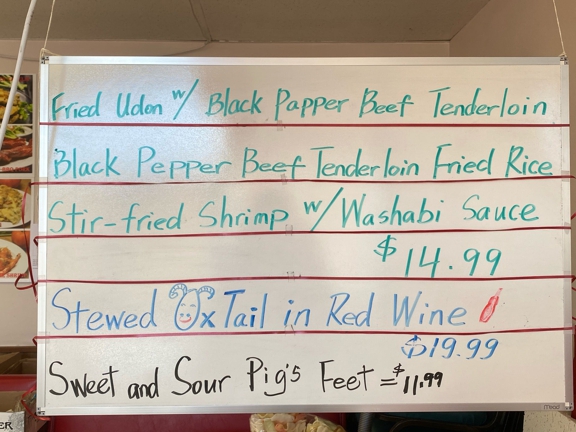 Fried Udon w/ Black Papper Beef Tenderloin
Black Pepper Beef Tenderloin Fried Rice
Stir-fried Shrimp w/ Washabi Sauce
$14.99
Stewed Ox Tail in Red Wine
$19.99
Sweet and Sour Pig's Feet = $11.99
Mead
ER